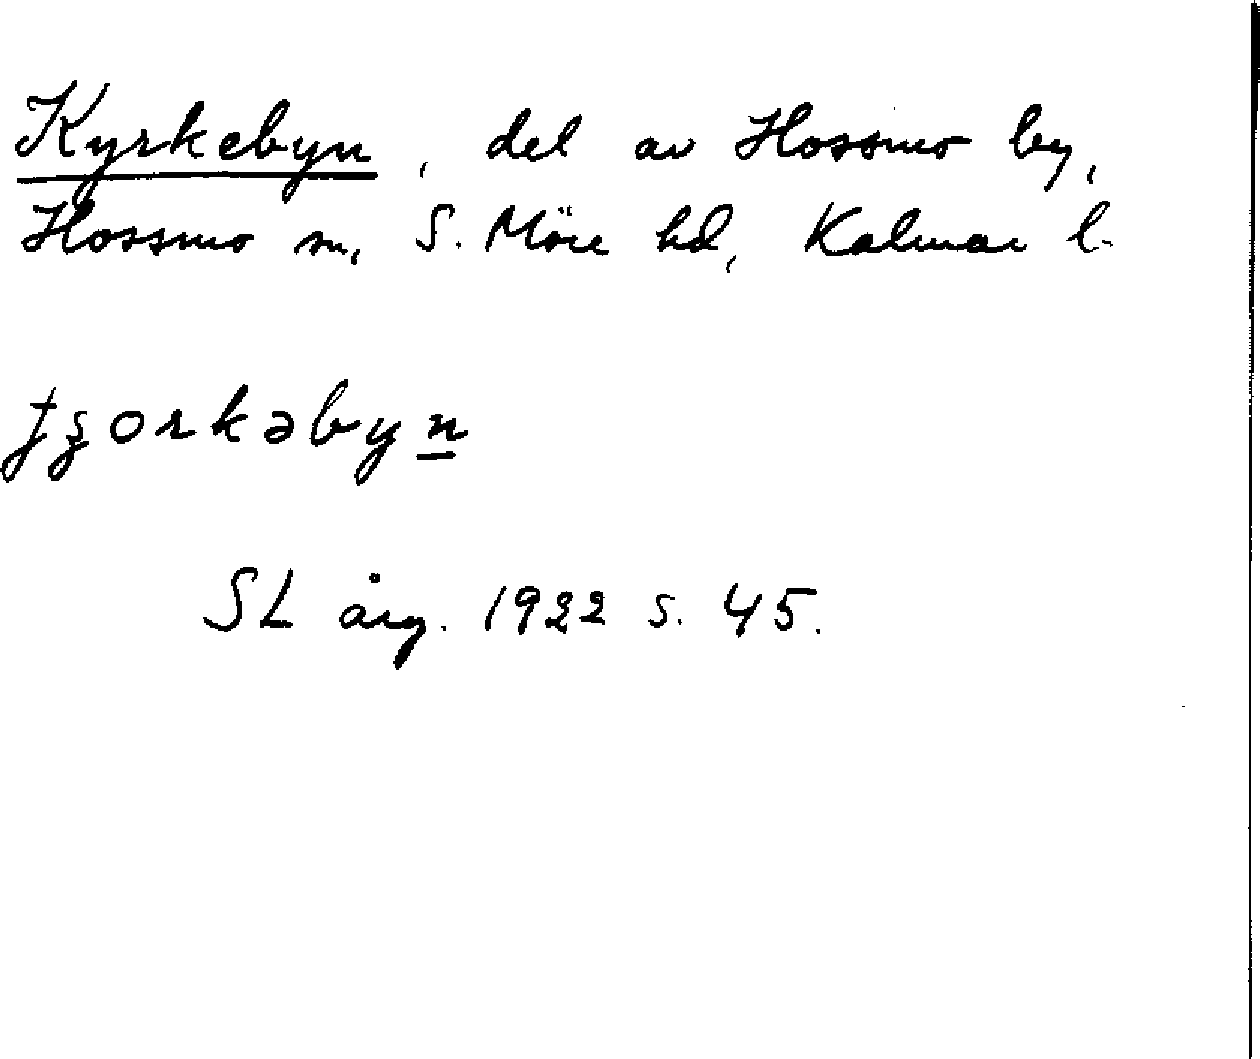 Kyrkebyn, del av Hossmo by,
Hossmo sn, S. Möre hd, Kalmar l.
SL årg. 1922 s. 45.